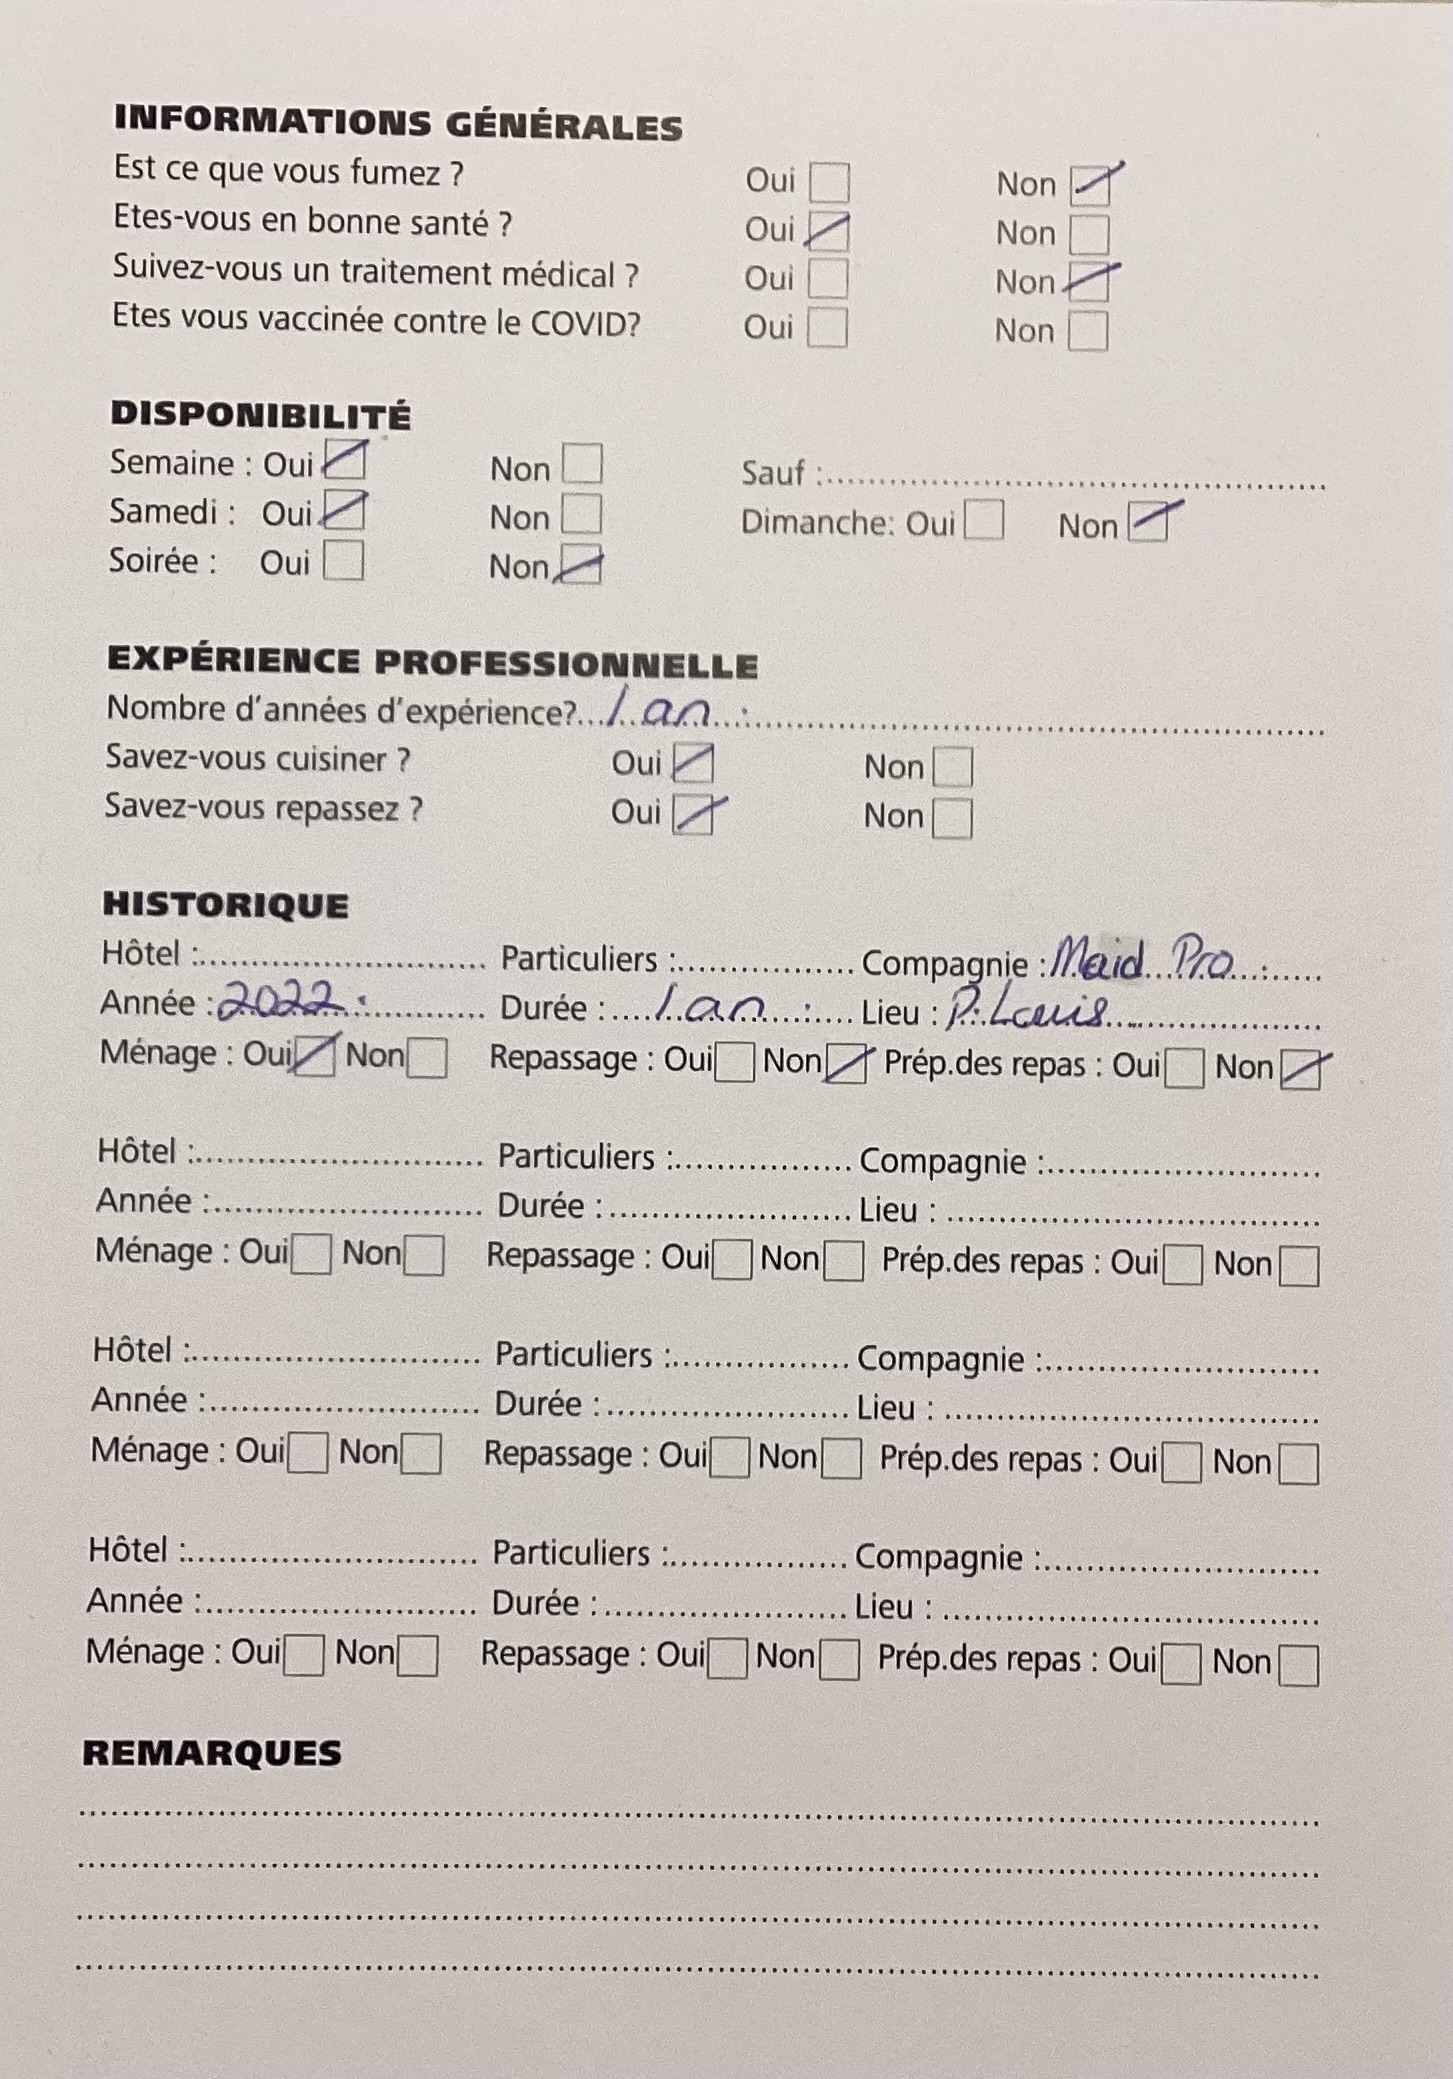 INFORMATIONS GÉNÉRALES
Est ce que vous fumez ? Oui ☐ Non ☑
Etes-vous en bonne santé ? Oui ☑ Non ☐
Suivez-vous un traitement médical ? Oui ☐ Non ☑
Etes vous vaccinée contre le COVID? Oui ☐ Non ☐
DISPONIBILITÉ
Semaine : Oui ☑ Non ☐ Sauf :..............................
Samedi : Oui ☑ Non ☐ Dimanche: Oui ☐ Non ☑
Soirée : Oui ☐ Non ☑
EXPÉRIENCE PROFESSIONNELLE
Nombre d'années d'expérience?...1 an..............................
Savez-vous cuisiner ? Oui ☑ Non ☐
Savez-vous repassez ? Oui ☑ Non ☐
HISTORIQUE
Hôtel :.............................. Particuliers :.................. Compagnie : Maid Pro
Année : 2022 Durée : 1 an Lieu : P. Louis
Ménage : Oui ☑ Non ☐ Repassage : Oui ☐ Non ☑ Prép.des repas : Oui ☐ Non ☑
Hôtel :.............................. Particuliers :.................. Compagnie :..............................
Année :.............................. Durée :.................. Lieu : ..............................
Ménage : Oui ☐ Non ☐ Repassage : Oui ☐ Non ☐ Prép.des repas : Oui ☐ Non ☐
Hôtel :.............................. Particuliers :.................. Compagnie :..............................
Année :.............................. Durée :.................. Lieu : ..............................
Ménage : Oui ☐ Non ☐ Repassage : Oui ☐ Non ☐ Prép.des repas : Oui ☐ Non ☐
Hôtel :.............................. Particuliers :.................. Compagnie :..............................
Année :.............................. Durée :.................. Lieu : ..............................
Ménage : Oui ☐ Non ☐ Repassage : Oui ☐ Non ☐ Prép.des repas : Oui ☐ Non ☐
REMARQUES